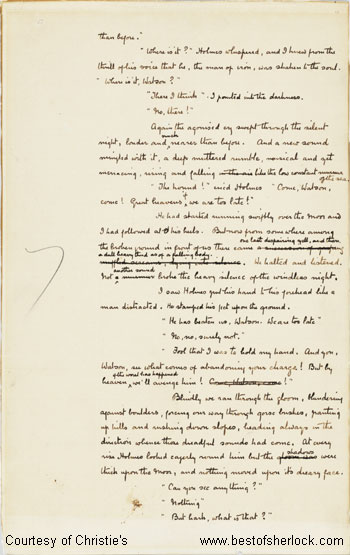 than before."
"Where is it?" Holmes whispered, and I knew from the
thrill of his voice that he, the man of iron, was shaken to the soul.
"Where is it, Watson?"
"There I think" I pointed into the darkness.
"No, there!"
Again the agonised cry swept through the silent
night, louder and much nearer than before. And a new sound
mingled with it, a deep muttered rumble, musical and yet
menacing, rising and falling like the low constant murmur
of the sea.
"The hound!" cried Holmes "Come, Watson,
come! Great heavens, if we are too late!"
He had started running swiftly over the moor and
I had followed at his heels. But now from somewhere among
the broken ground in front of us there came one last despairing yell, and then
a dull heavy thud as of a falling body. He halted and listened.
Not another sound broke the heavy silence of the windless night.
I saw Holmes put his hand to his forehead like a
man distracted. He stamped his feet upon the ground.
"He has beaten us, Watson. We are too late"
"No, no, surely not."
"Fool that I was to hold my hand. And you,
Watson, see what comes of abandoning your charge! But by
heaven, if the worst has happened we'll avenge him!"
Blindly we ran through the gloom, blundering
against boulders, forcing our way through gorse bushes, panting
up hills and rushing down slopes, heading always in the
direction whence those dreadful sounds had come. At every
rise Holmes looked eagerly round him but the shadows were
thick upon the moor, and nothing moved upon its dreary face.
"Can you see anything?"
"Nothing"
"But hark, what is that?"
Courtesy of Christie's
www.bestofsherlock.com